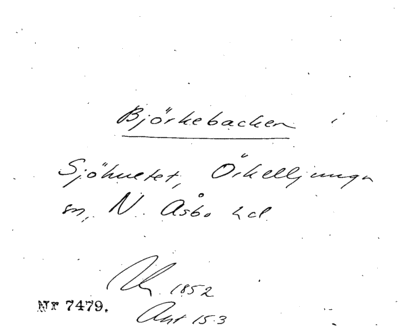 Björkebacken i
Sjöhultet, Örkelljunga
sn, N. Åsbo hd.
1852
Nr 7479.
Akt 153